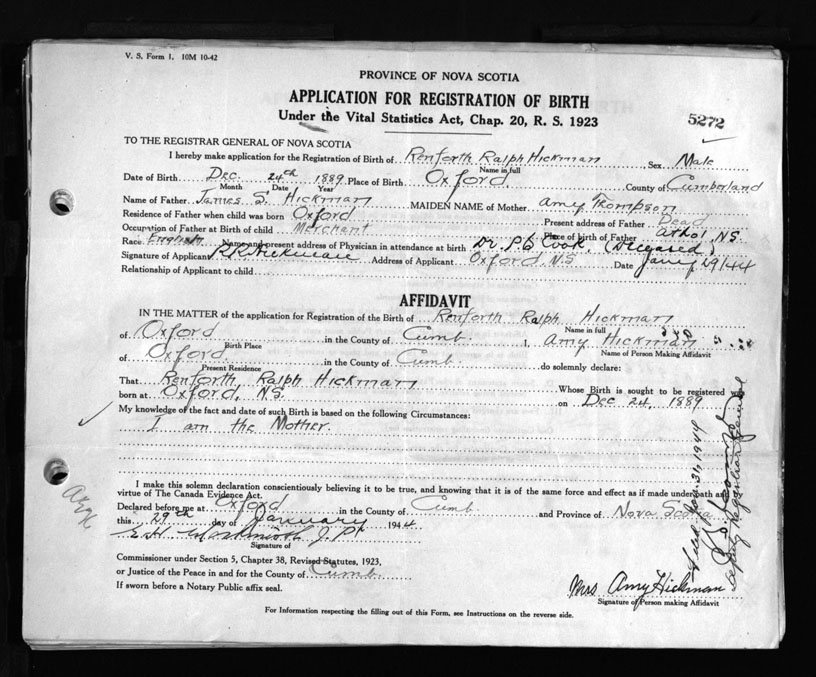 V. S. Form 1. 10M 10-42
PROVINCE OF NOVA SCOTIA
APPLICATION FOR REGISTRATION OF BIRTH
Under the Vital Statistics Act, Chap. 20, R. S. 1923
5272
TO THE REGISTRAR GENERAL OF NOVA SCOTIA
I hereby make application for the Registration of Birth of Renforth Ralph Hickman Sex Male
Name in full
Date of Birth Dec. 24th 1889 Place of Birth Oxford. County of Cumberland
Month Date Year
Name of Father James S. Hickman MAIDEN NAME of Mother Amy Thompson
Residence of Father when child was born Oxford Present address of Father Dead
Occupation of Father at Birth of child Merchant Place of birth of Father Athol N.S.
Race English Name and present address of Physician in attendance at birth Dr. P. Cook. (Deceased)
Signature of Applicant R.R. Hickman Address of Applicant Oxford, N.S Date Jany 29/44
Relationship of Applicant to child
AFFIDAVIT
IN THE MATTER of the application for Registration of the Birth of Renforth Ralph Hickman
Name in full
of Oxford in the County of Cumb. I, Amy Hickman
Birth Place Name of Person Making Affidavit
of Oxford. in the County of Cumb. do solemnly declare:
Present Residence
That Renforth Ralph Hickman Whose Birth is sought to be registered was
born at Oxford, N.S. on Dec 24, 1889
My knowledge of the fact and date of such Birth is based on the following Circumstances:
I am the Mother.
I make this solemn declaration conscientiously believing it to be true, and knowing that it is of the same force and effect as if made under oath and
virtue of The Canada Evidence Act.
Declared before me at Oxford in the County of Cumb and Province of Nova Scotia
this 29th day of January 1944
J. P.
Signature of
Commissioner under Section 5, Chapter 38, Revised Statutes, 1923,
or Justice of the Peace in and for the County of Cumb.
If sworn before a Notary Public affix seal.
Mrs Amy Hickman
Signature of Person making Affidavit
For Information respecting the filling out of this Form, see Instructions on the reverse side.
Filed Jan. 31, 1944
Deputy Registrar General